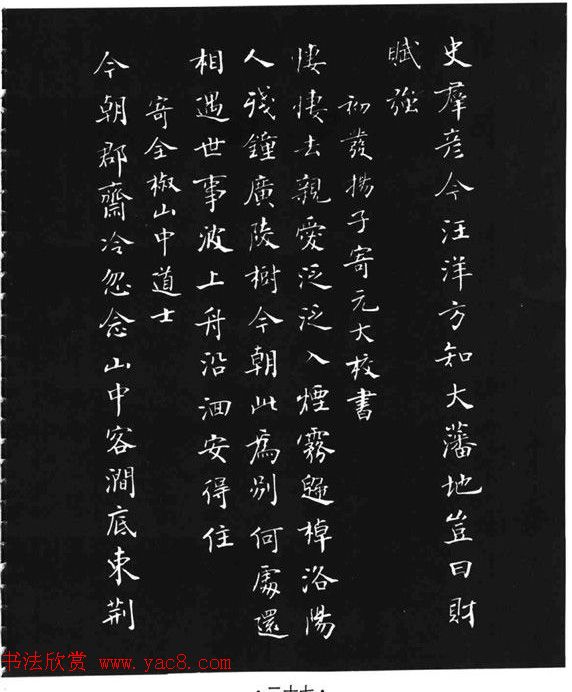 史羣彦今汪洋方知大藩地豈曰財
賦强
初發揚子寄元大校書
悽悽去親愛泛泛入煙霧歸棹洛陽
人殘鐘廣陵樹今朝此為別何處還
相遇世事波上舟沿洄安得住
寄全椒山中道士
今朝郡齋冷忽念山中客澗底束荆
书法欣赏 www.yac8.com
·二十七·